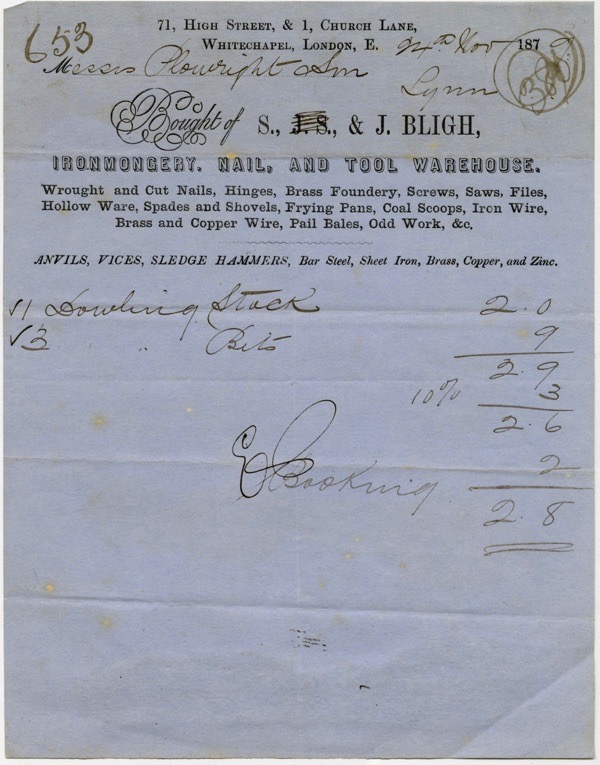 71, High Street, & 1, Church Lane,
653
Whitechapel, London, E. 24th Nov 1879
Messrs Plowright & Son
Lynn
Bought of S., J. S., & J. BLIGH,
IRONMONGERY, NAIL, AND TOOL WAREHOUSE.
Wrought and Cut Nails, Hinges, Brass Foundery, Screws, Saws, Files,
Hollow Ware, Spades and Shovels, Frying Pans, Coal Scoops, Iron Wire,
Brass and Copper Wire, Pail Bales, Odd Work, &c.
ANVILS, VICES, SLEDGE HAMMERS, Bar Steel, Sheet Iron, Brass, Copper, and Zinc.
√1 Dowling Stock 2.0
√3 " Bits 9
2.9
10% 3
2.6
Booking 2
2.8